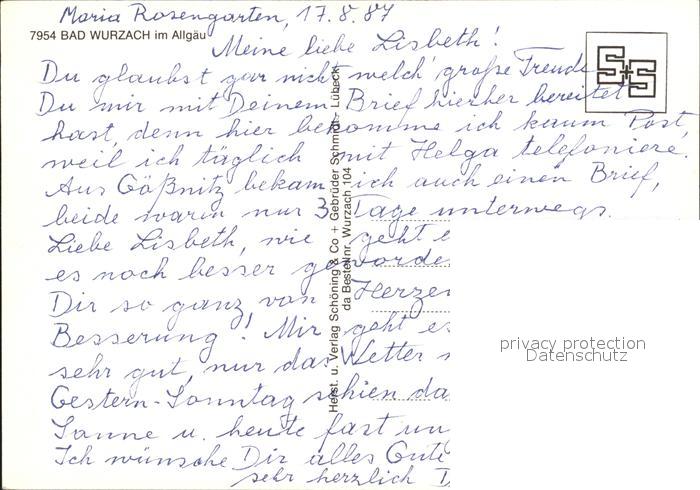 Maria Rosengarten, 17.8.87
7954 BAD WURZACH im Allgäu
Meine liebe Lisbeth!
Du glaubst gar nicht welch' große Freude
Du mir mit Deinem Brief hierher bereitet
hast, denn hier bekomme ich kaum Post,
weil ich täglich mit Helga telefoniere.
Aus Gößnitz bekam ich auch einen Brief,
beide waren nur 3 Tage unterwegs.
Liebe Lisbeth, wie geht e
es noch besser geworde
Dir so ganz von Herzen
Besserung! Mir geht es
sehr gut, nur das Wetter
Gestern-Sonntag schien da
Sonne u. heute fast un
Ich wünsche Dir alles Gute
sehr herzlich D
Herst. u. Verlag Schöning & Co + Gebrüder Schmidt, Lübeck
da Bestellnr. Wurzach 104
S+S
privacy protection
Datenschutz